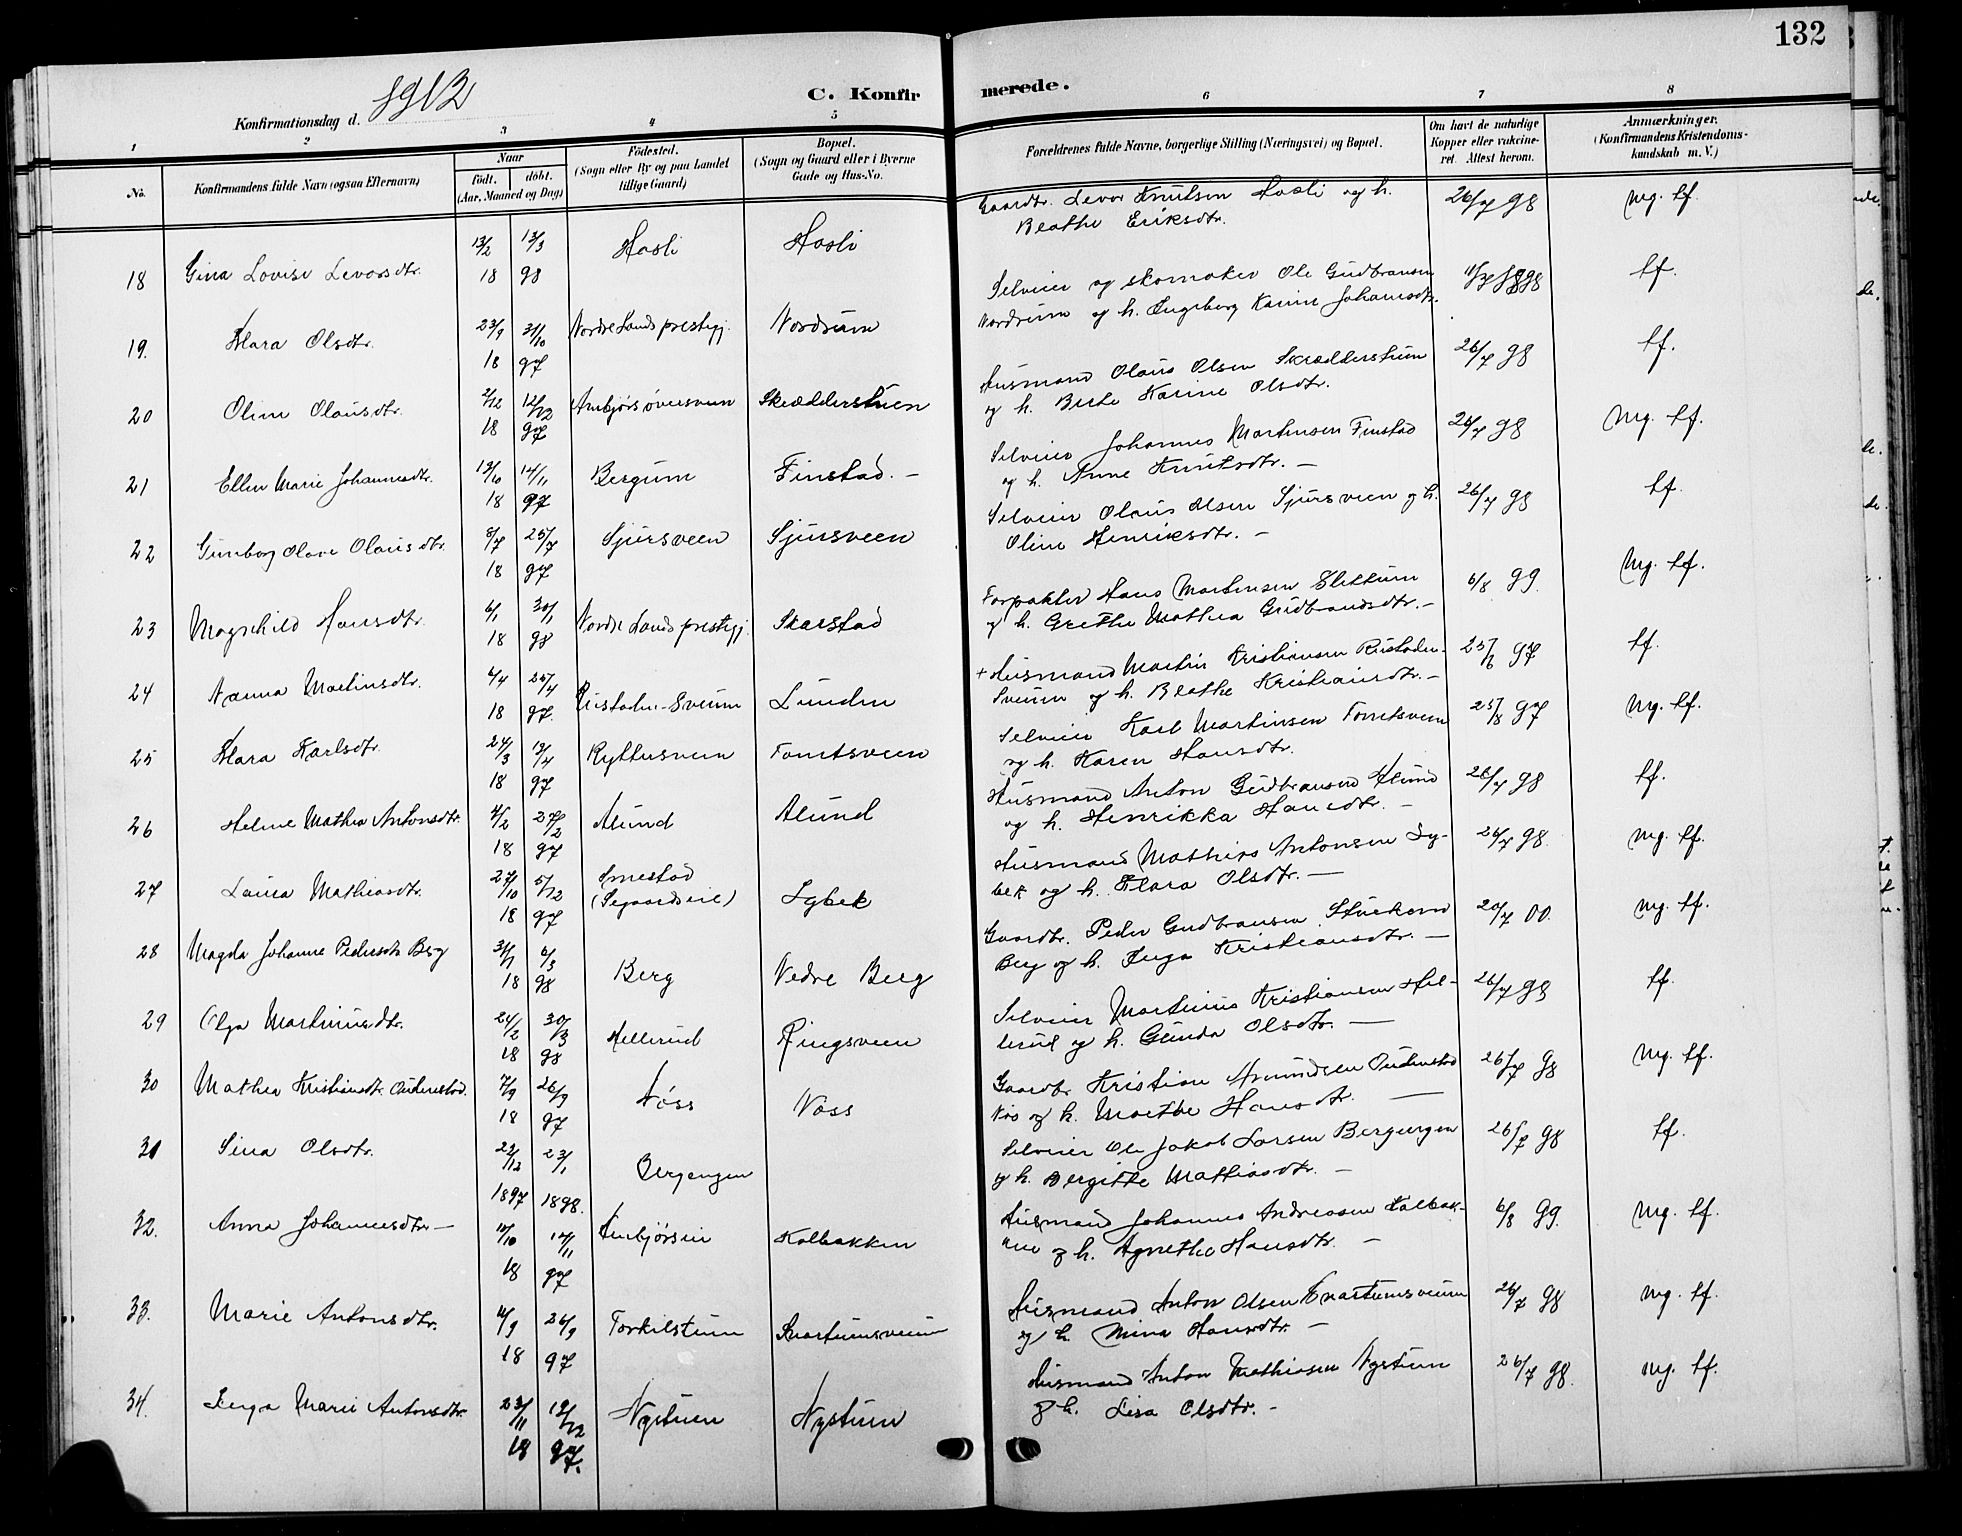 132
1912
C. Konfirmerede.
Konfirmationsdag d.
1 2 3 4 5 6 7 8
No. Konfirmandens fulde Navn (ogsaa Efternavn) Naar født. døbt. (Aar, Maaned og Dag) Fødested. (Sogn eller By og paa Landet tillige Gaard) Bopæl. (Sogn og Gaard eller i Byerne Gade og Hus-No.) Forældrenes fulde Navne, borgerlige Stilling (Næringsvei) og Bopæl. Om havt de naturlige Kopper eller vaccineret. Attest herom. Anmærkninger. (Konfirmandens Kristendomskundskab m. V.)
18 Gina Lovise Levorsdtr. 13/2 18 13/3 98 Hasli Hasli Gaardbr. Levor Knutsen Hasli og h. Beathe Eriksdtr. 26/7 98 mg. tf.
19. Klara Olsdtr. 23/9 18 31/10 97 Nordre Lands prestegj. Nordrum Selveier og skomaker Ole Gudbransen Nordrum og h. Ingeborg Karine Johansdtr. tf.
20 Oline Olausdtr. 2/12 18 12/12 97 Skrædderstuen Husmand Olaus Olsen Skrædderstuen og h. Berte Karine Olsdtr. 26/7 98 tf.
21 Ellen Marie Johannesdtr. 13/10 18 14/11 97 Bergum Finstad. – Selveier Johannes Martinsen Finstad og h. Anne Knutsdtr. – 26/7 98 mg. tf.
22 Gunborg Olave Olausdtr. 8/7 18 25/7 97 Sjursveen Sjursveen Selveier Olaus Olsen Sjursveen og h. Oline Henriksdtr. – 26/7 98 tf.
23 Magnhild Hansdtr. 6/1 18 30/1 98 Nordre Lands prestegj. Skarstad Forpakter Hans Martinsen Slettum og h. Grethe Mathea Gudbrandsdtr. – 6/8 99. mg. tf.
24 Nanna Martinsdtr. 6/4 18 25/4 97. Rustaden-Sveum Lunden + Husmand Martin Kristiansen Rustaden-Sveum og h. Beathe Kristiansdtr. – 25/6 97 tf.
25 Klara Karlsdtr. 24/3 18 19/4 97 Ryttersveen Tomtsveen Selveier Karl Martinsen Tomtsveen og h. Karen Hansdtr. 25/8 97 mg. tf.
26 Helene Mathea Antonsdtr. 4/2 18 27/2 97 Alund Alund Husmand Anton Gudbransen Alund og h. Henrikka Hansdtr. – 26/7 98 tf.
27 Laura Mathiasdtr. 27/10 18 5/12 97 Smestad Lybek Husmand Mathias Antonsen Lybek og h. Klara Olsdtr. – 26/7 98. mg. tf.
28 Magda Johanne Pedersdtr. Berg 31/1 18 6/3 98 Berg Nedre Berg Gaardbr. Peder Gudbransen Berg og h. Inga Kristiansdtr. – 20/7 00. mg. tf.
29 Olga Martinusdtr. 24/2 18 30/3 98 Hellerud Ringsveen Selveier Martinus Kristiansen Hellerud og h. Gunda Olsdtr. – 26/7 98 tf.
30 Mathea Kristiansdtr. Oudenstad. 7/9 18 26/9 97 Nøss Nøss Gaardbr. Kristian Amundsen Oudenstad Nøs og h. Marthe Hansdtr. – 26/7 98 mg. tf.
31 Sina Olsdtr. 22/12 1897 23/1 1898. Bergengen Selveier Ole Jakob Larsen Bergengen og h. Bergitte Mathiasdtr. – 26/7 98 tf.
32. Anna Johannesdtr. – 14/10 18 14/11 97 Kolbakken Husmand Johannes Andreasen Kolbakken og h. Agnethe Hansdtr. – 6/8 99. mg. tf.
33. Marie Antonsdtr. 4/9 18 26/9 97 Torkilstuen Kvartumsveum Husmand Anton Olsen Kvartumsveum og h. Mina Hansdtr. – 26/7 98 mg. tf.
34. Inga Marie Antonsdtr. 23/11 18 12/12 97. Nystuen Nystuen Husmand Anton Mathiasen Nystuen og h. Lisa Olsdtr. – 26/7 98. mg. tf.